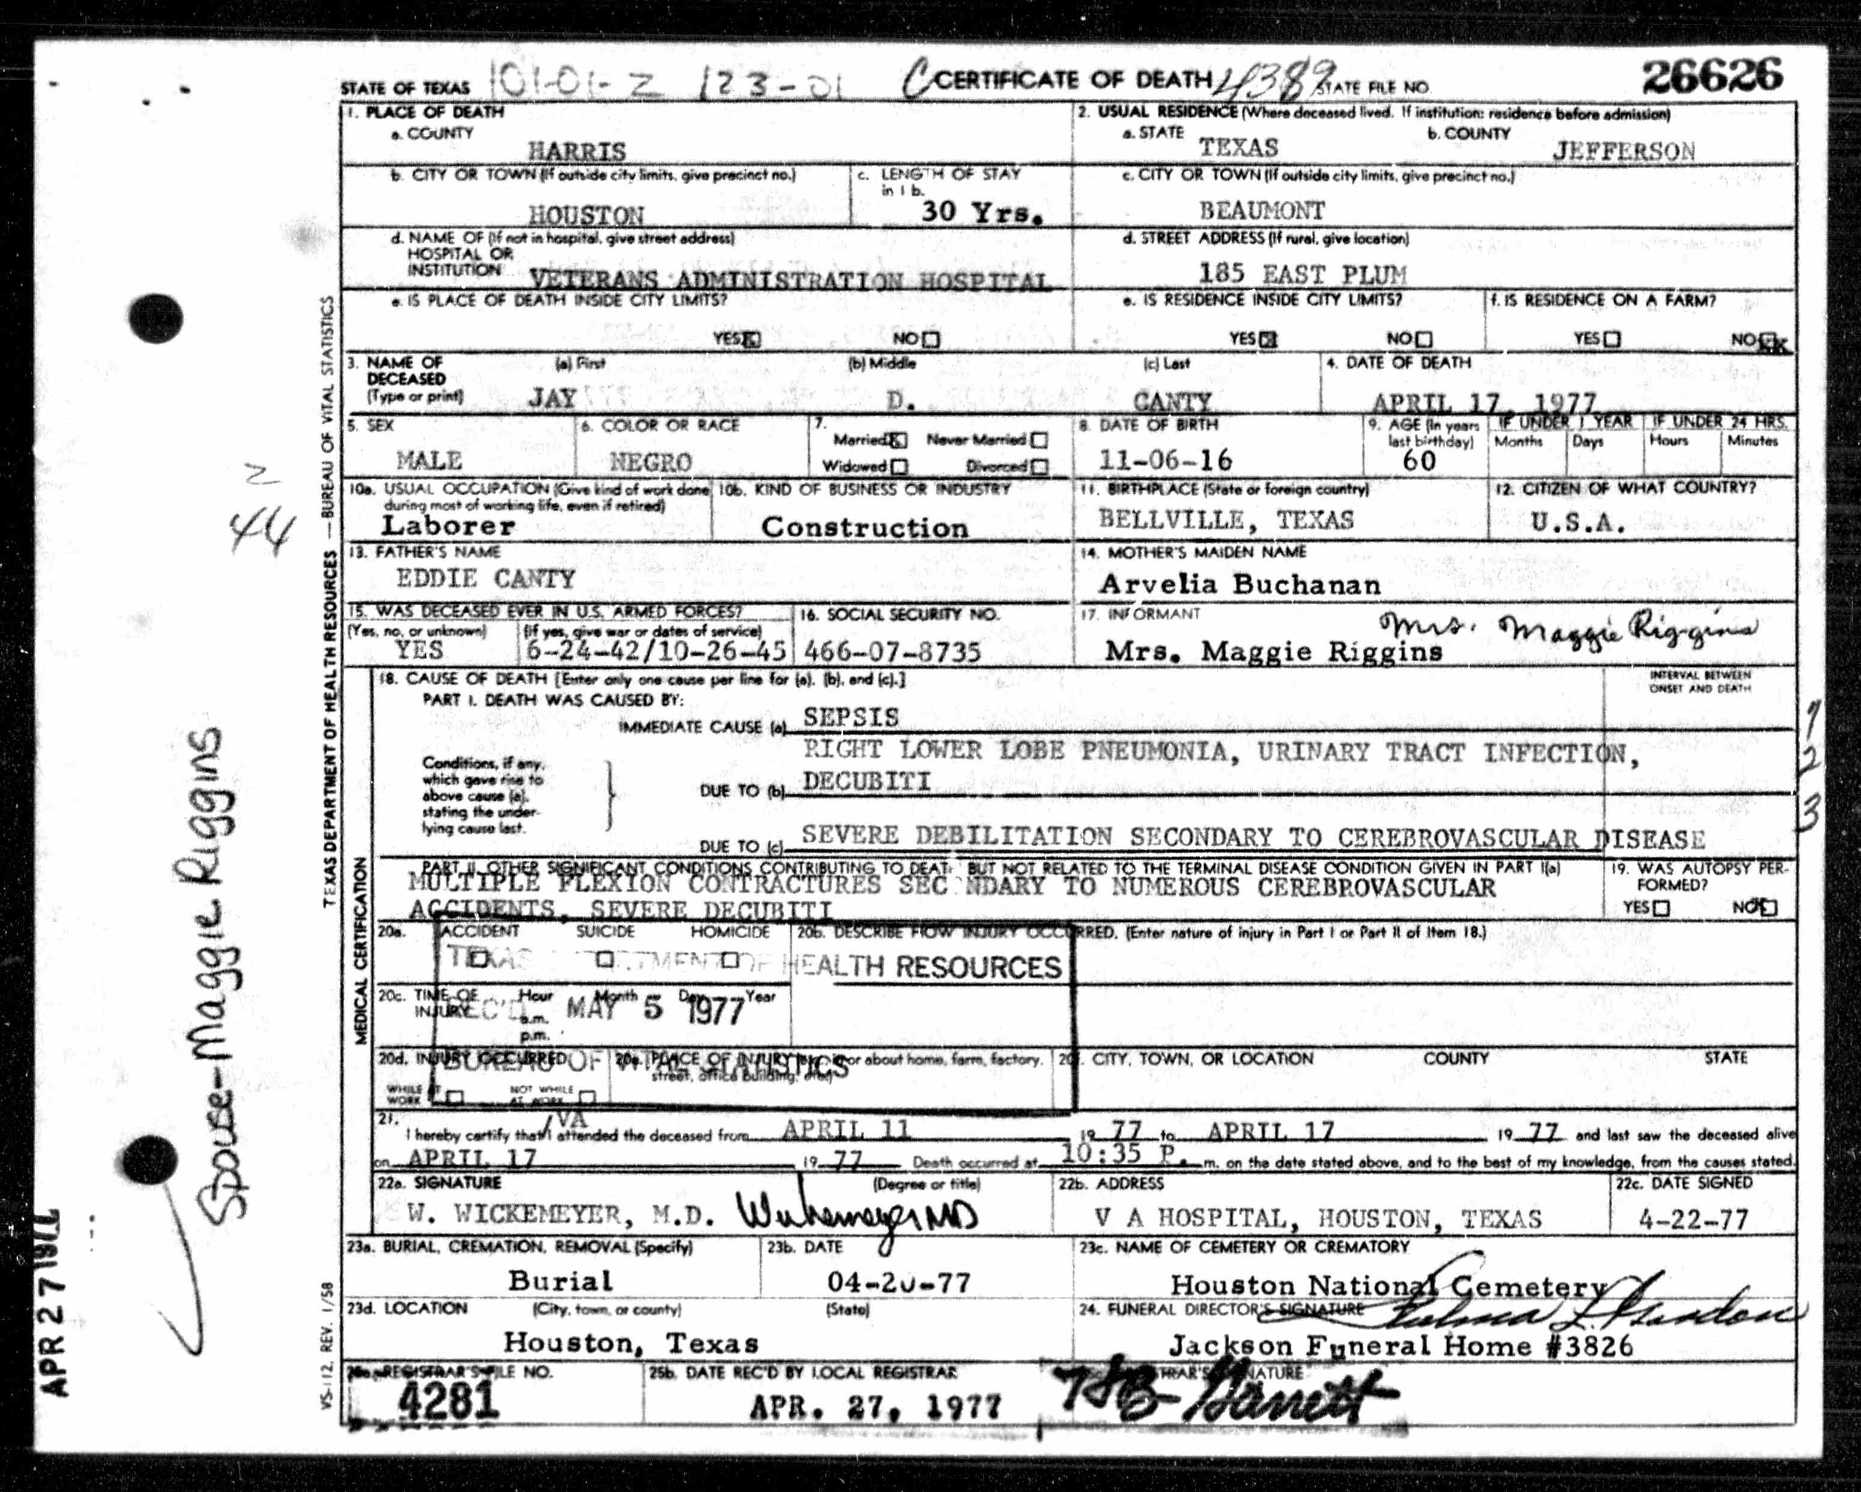 STATE OF TEXAS 101-01-2 123-01 CERTIFICATE OF DEATH 4389 STATE FILE NO. 26626
1. PLACE OF DEATH
a. COUNTY
HARRIS
2. USUAL RESIDENCE (Where deceased lived. If institution: residence before admission)
a. STATE
TEXAS
b. COUNTY
JEFFERSON
b. CITY OR TOWN (If outside city limits, give precinct no.)
HOUSTON
c. LENGTH OF STAY
in 1 b.
30 Yrs.
c. CITY OR TOWN (If outside city limits, give precinct no.)
BEAUMONT
d. NAME OF (If not in hospital, give street address)
HOSPITAL OR
INSTITUTION VETERANS ADMINISTRATION HOSPITAL
d. STREET ADDRESS (If rural, give location)
185 EAST PLUM
e. IS PLACE OF DEATH INSIDE CITY LIMITS?
YES NO
e. IS RESIDENCE INSIDE CITY LIMITS?
YES NO
f. IS RESIDENCE ON A FARM?
YES NO
3. NAME OF
DECEASED
(Type or print)
(a) First
JAY
(b) Middle
D.
(c) Last
CANTY
4. DATE OF DEATH
APRIL 17, 1977
5. SEX
MALE
6. COLOR OR RACE
NEGRO
7.
Married Never Married
Widowed Divorced
8. DATE OF BIRTH
11-06-16
9. AGE (In years
last birthday)
60
IF UNDER 1 YEAR
Months Days
IF UNDER 24 HRS.
Hours Minutes
10a. USUAL OCCUPATION (Give kind of work done
during most of working life, even if retired)
Laborer
10b. KIND OF BUSINESS OR INDUSTRY
Construction
11. BIRTHPLACE (State or foreign country)
BELLVILLE, TEXAS
12. CITIZEN OF WHAT COUNTRY?
U.S.A.
13. FATHER'S NAME
EDDIE CANTY
14. MOTHER'S MAIDEN NAME
Arvelia Buchanan
15. WAS DECEASED EVER IN U.S. ARMED FORCES?
(Yes, no, or unknown)
YES
(If yes, give war or dates of service)
6-24-42/10-26-45
16. SOCIAL SECURITY NO.
466-07-8735
17. INFORMANT
Mrs. Maggie Riggins
Mrs. Maggie Riggins
18. CAUSE OF DEATH [Enter only one cause per line for (a), (b), and (c).]
PART I. DEATH WAS CAUSED BY:
INTERVAL BETWEEN
ONSET AND DEATH
IMMEDIATE CAUSE (a) SEPSIS
Conditions, if any,
which gave rise to
above cause (a),
stating the under-
lying cause last.
RIGHT LOWER LOBE PNEUMONIA, URINARY TRACT INFECTION,
DUE TO (b) DECUBITI
DUE TO (c) SEVERE DEBILITATION SECONDARY TO CEREBROVASCULAR DISEASE
1
2
3
PART II. OTHER SIGNIFICANT CONDITIONS CONTRIBUTING TO DEATH BUT NOT RELATED TO THE TERMINAL DISEASE CONDITION GIVEN IN PART I(a)
MULTIPLE FLEXION CONTRACTURES SECONDARY TO NUMEROUS CEREBROVASCULAR
ACCIDENTS, SEVERE DECUBITI
19. WAS AUTOPSY PER-
FORMED?
YES NO
20a. ACCIDENT SUICIDE HOMICIDE
20b. DESCRIBE HOW INJURY OCCURRED. (Enter nature of injury in Part I or Part II of Item 18.)
TEXAS DEPARTMENT OF HEALTH RESOURCES
REC'D MAY 5 1977
BUREAU OF VITAL STATISTICS
20c. TIME OF
INJURY
Hour Month Day Year
a.m.
p.m.
20d. INJURY OCCURRED
WHILE AT
WORK
NOT WHILE
AT WORK
20e. PLACE OF INJURY (e.g., in or about home, farm, factory,
street, office building, etc.)
20f. CITY, TOWN, OR LOCATION COUNTY STATE
21.
I hereby certify that I/VA attended the deceased from APRIL 11 19 77 to APRIL 17 19 77 and last saw the deceased alive
on APRIL 17 19 77 Death occurred at 10:35 P. m. on the date stated above, and to the best of my knowledge, from the causes stated.
22a. SIGNATURE (Degree or title)
W. WICKEMEYER, M.D. Wickemeyer MD
22b. ADDRESS
V A HOSPITAL, HOUSTON, TEXAS
22c. DATE SIGNED
4-22-77
23a. BURIAL, CREMATION, REMOVAL (Specify)
Burial
23b. DATE
04-20-77
23c. NAME OF CEMETERY OR CREMATORY
Houston National Cemetery
23d. LOCATION (City, town, or county) (State)
Houston, Texas
24. FUNERAL DIRECTOR'S SIGNATURE
Jackson Funeral Home #3826
25a. REGISTRAR'S FILE NO.
4281
25b. DATE REC'D BY LOCAL REGISTRAR
APR. 27, 1977
REGISTRAR'S SIGNATURE
Garrett
TEXAS DEPARTMENT OF HEALTH RESOURCES — BUREAU OF VITAL STATISTICS
MEDICAL CERTIFICATION
VS-112, REV. 1/58
2
44
Spouse-Maggie Riggins
APR 27 1977